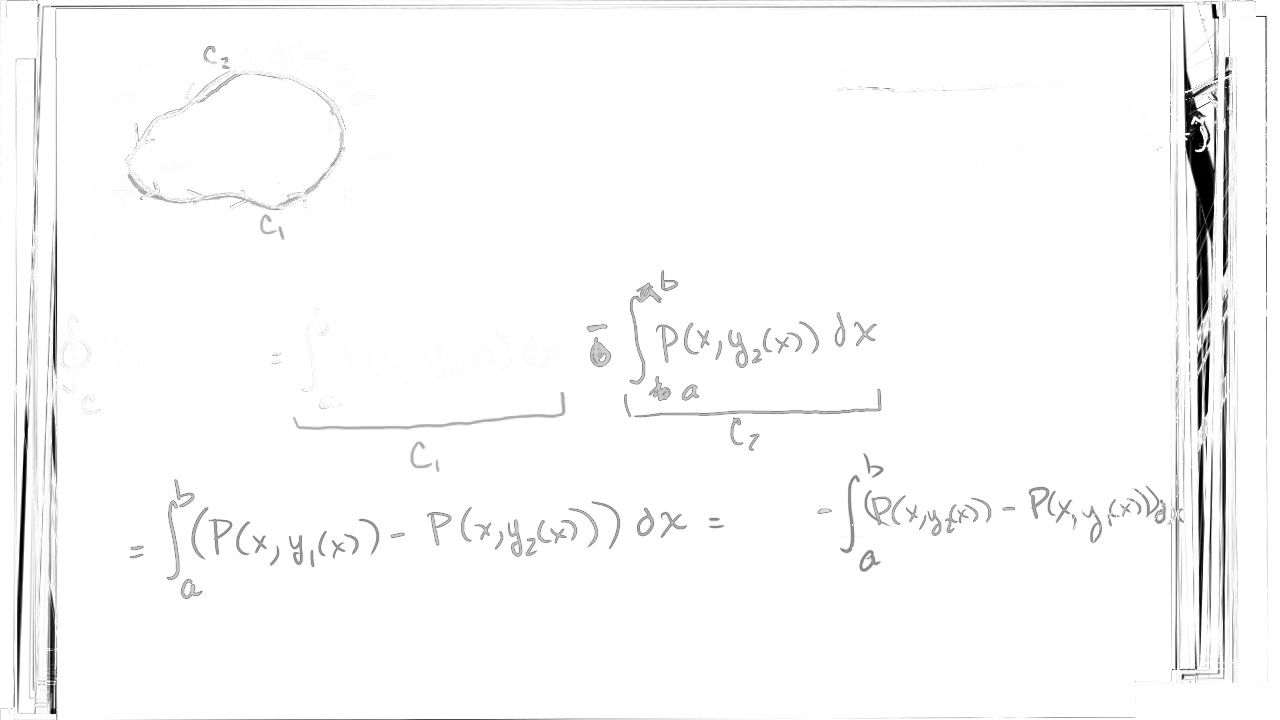 C₂
C₁
= ∫ₐᵇ P(x, y₁(x)) dx - ∫ₐᵇ P(x, y₂(x)) dx
C
C₁ C₂
= ∫ₐᵇ (P(x, y₁(x)) - P(x, y₂(x))) dx = - ∫ₐᵇ (P(x, y₂(x)) - P(x, y₁(x))) dx